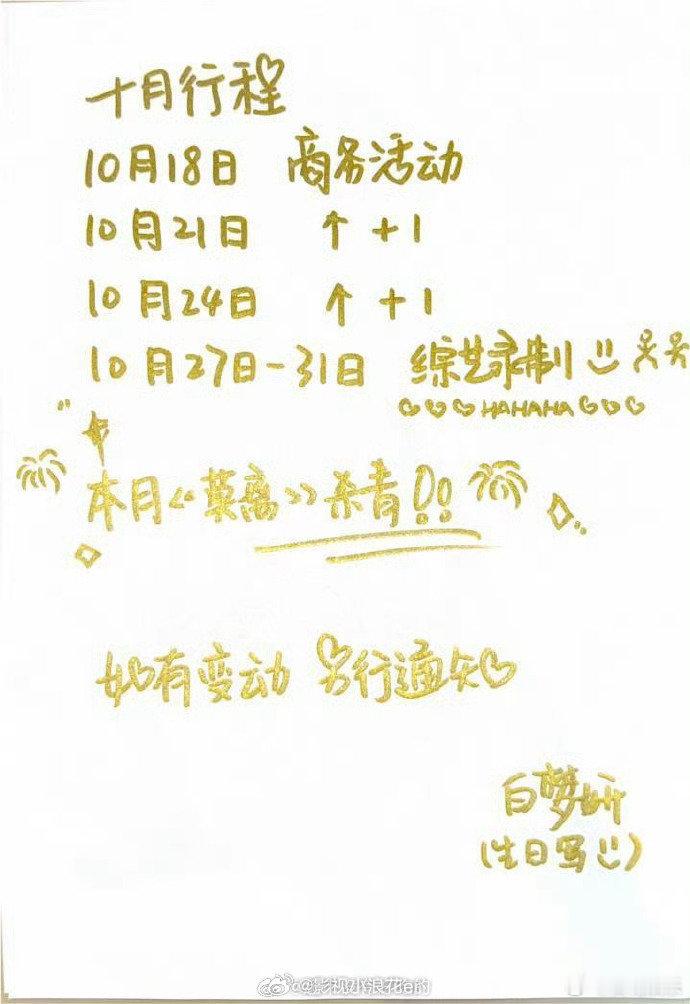 十月行程
10月18日 商务活动
10月21日 ↑ +1
10月24日 ↑ +1
10月27日-31日 综艺录制
HAHAHA
本月《莱离》杀青!!
如有变动 另行通知
白梦妍
(生日写)
@影视小浪花e的